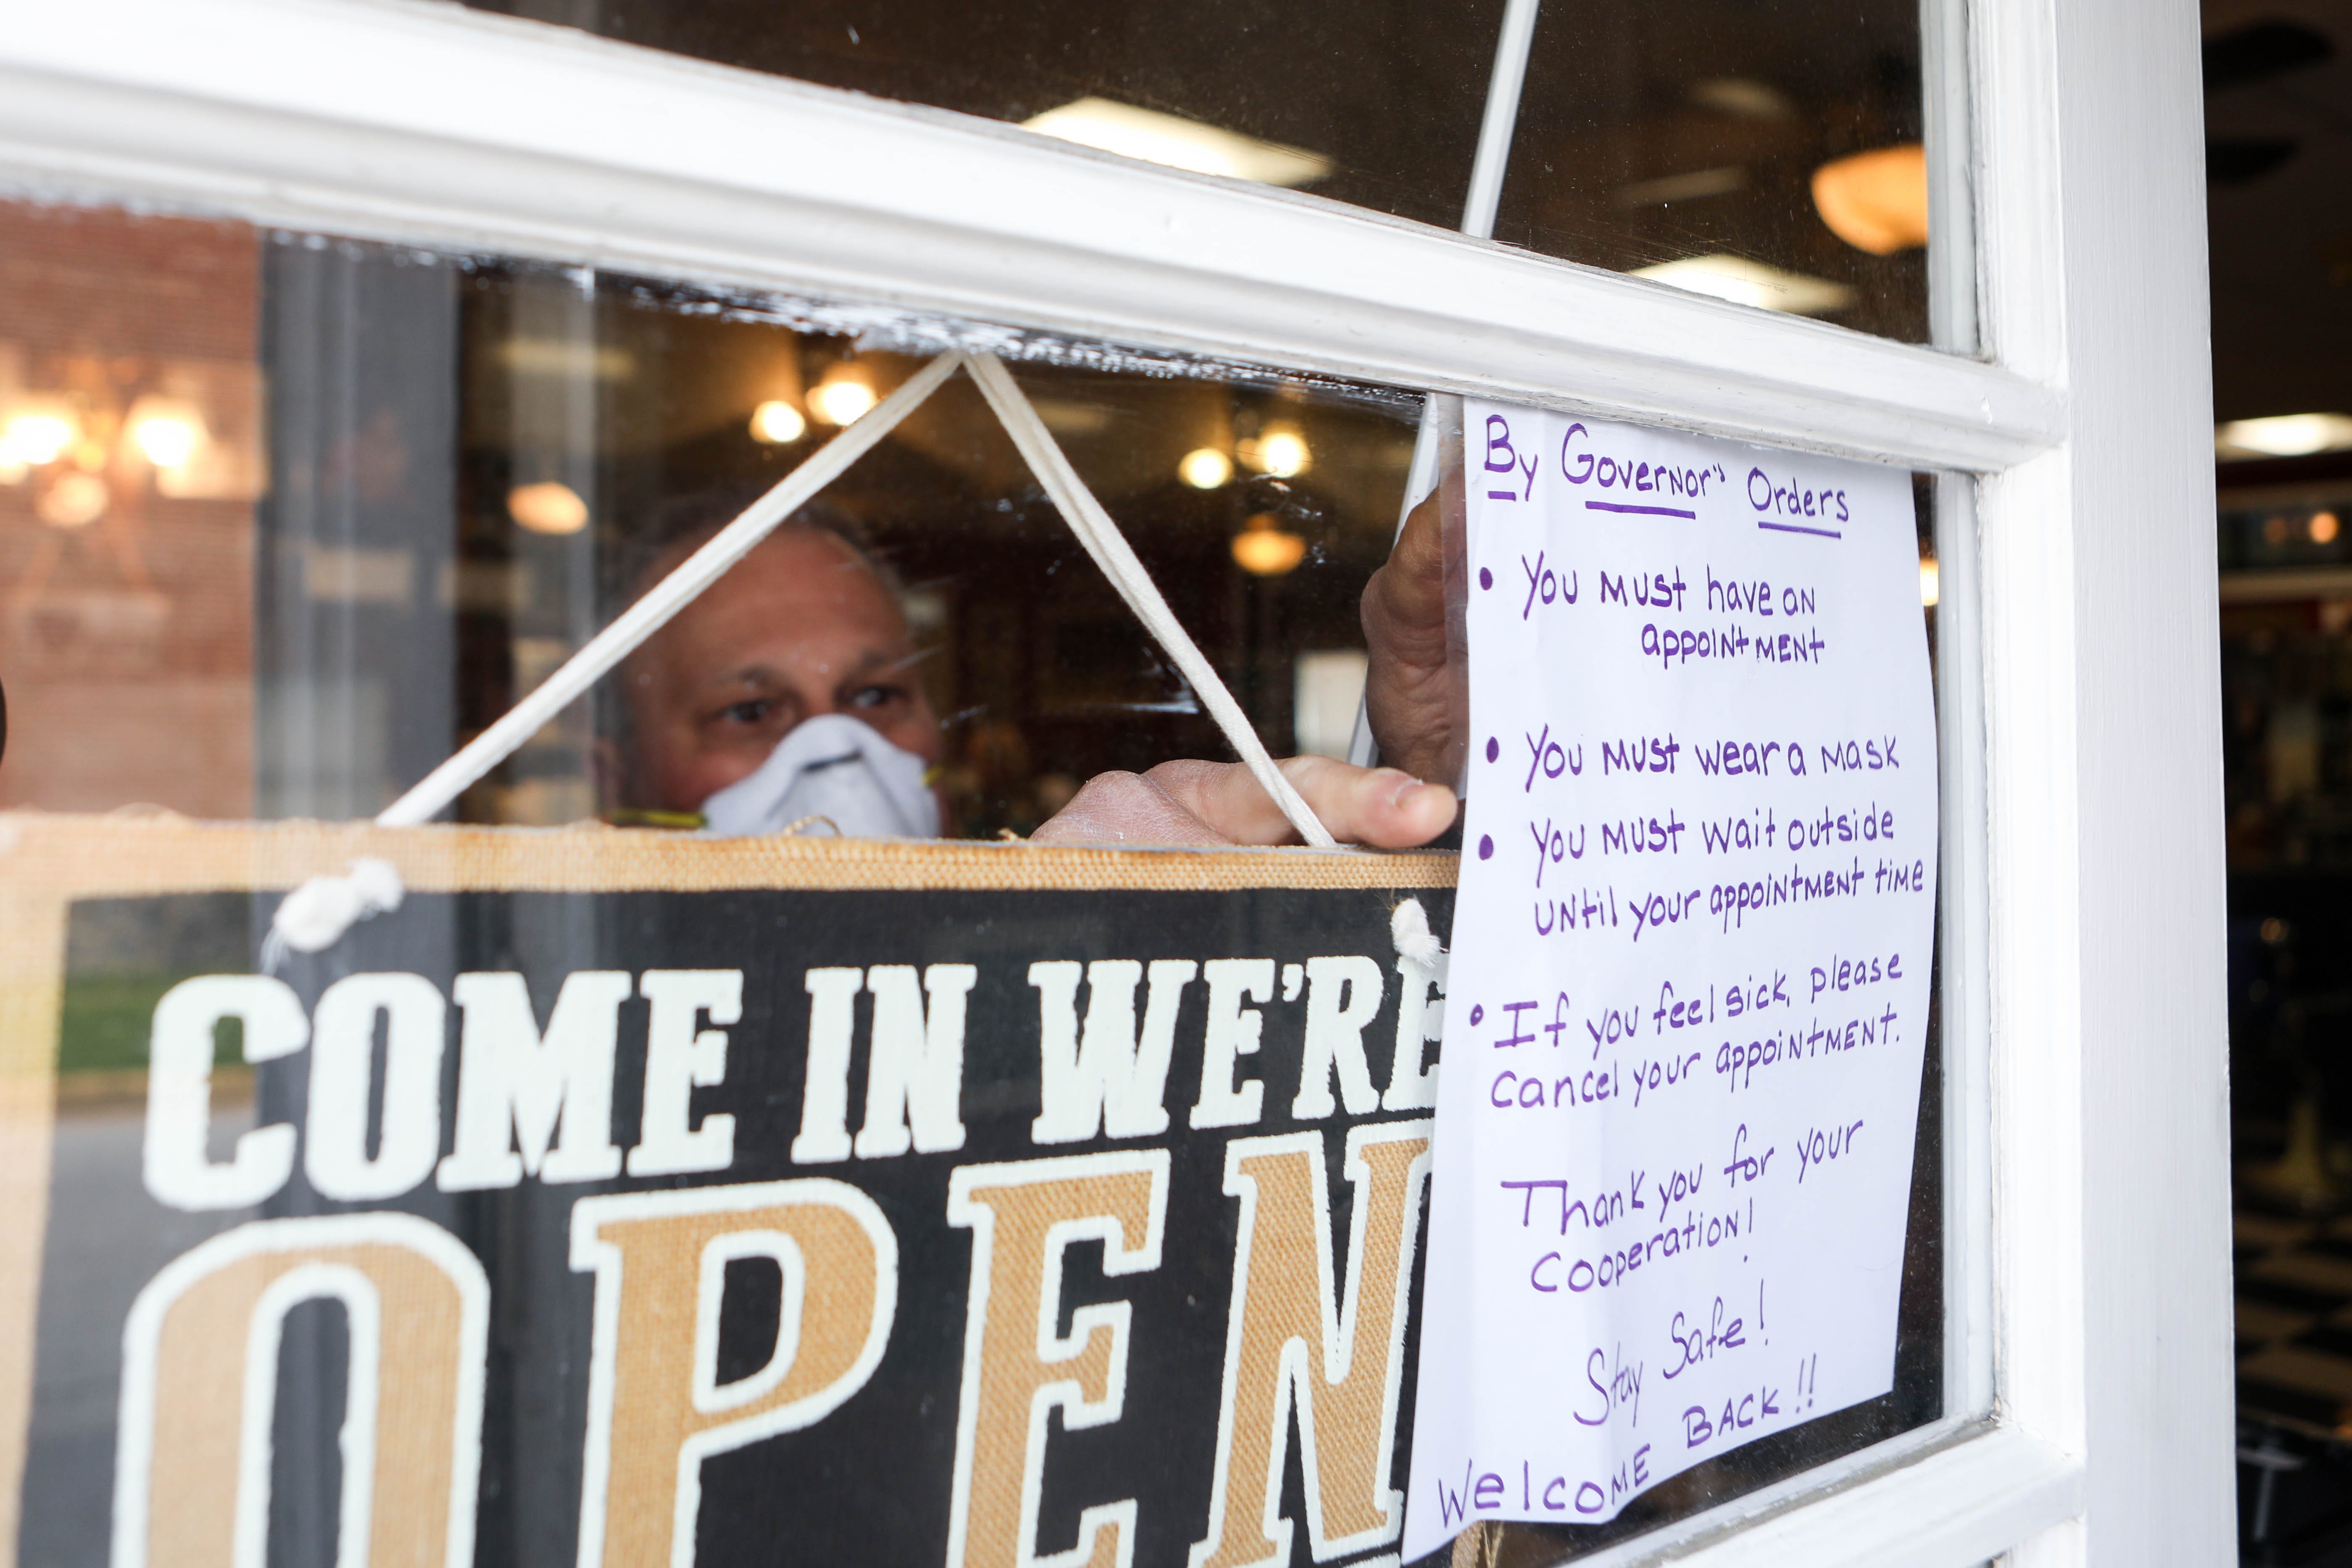 COME IN WE'RE
OPEN
By Governor" Orders
• You must have an
appointment
• You must wear a mask
• You must wait outside
until your appointment time
• If you feel sick, please
cancel your appointment.
Thank you for your
Cooperation!
Stay Safe!
Welcome Back!!